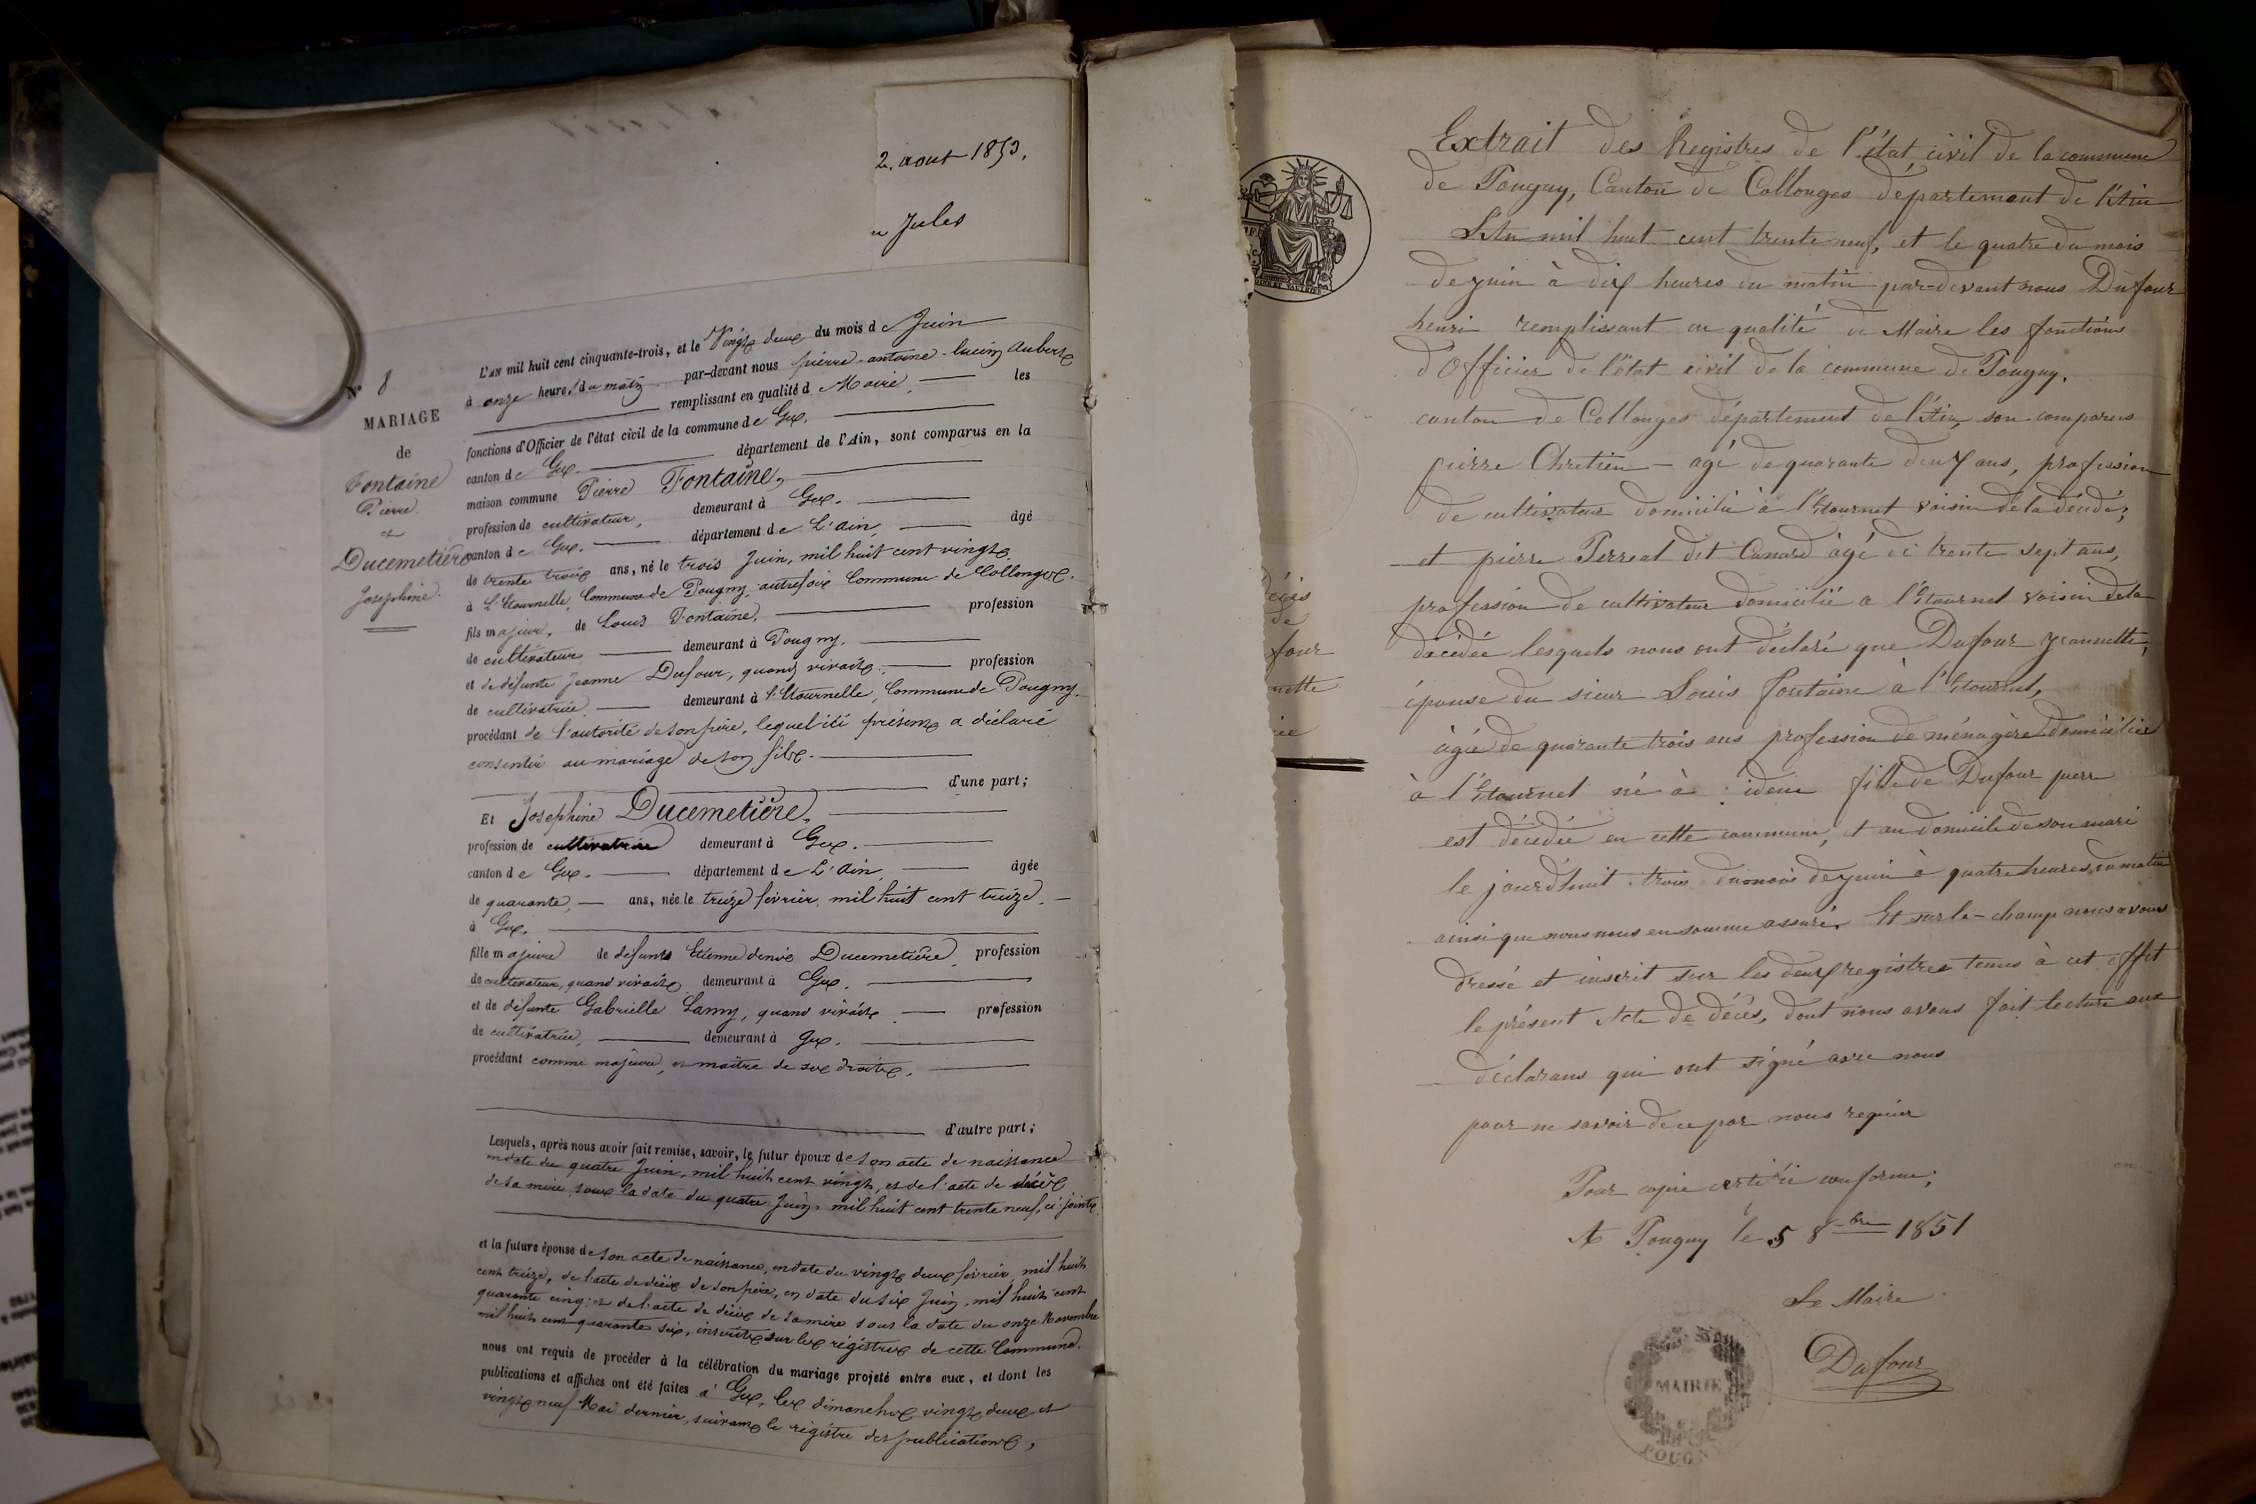 2. aout 1853.
Jules
N° 8
MARIAGE
de
Fontaine
Pierre
et
Ducemetière
Josephine
L'AN mil huit cent cinquante-trois, et le Vingt deux du mois de Juin
à onze heures du matin par-devant nous pierre-antoine-lucien Aubert
remplissant en qualité d Maire, les
fonctions d'Officier de l'état civil de la commune de Gex,
canton de Gex. département de l'Ain, sont comparus en la
maison commune Pierre Fontaine,
profession de cultivateur, demeurant à Gex.
canton de Gex. département de L'ain, âgé
de trente trois ans, né le trois Juin, mil huit cent vingt
à L'Etournelle, Commune de Pougny, autrefois Commune de Collonges.
fils majeur, de Louis Fontaine, profession
de cultivateur, demeurant à Pougny,
et de défunte Jeanne Dufour, quand vivait, profession
de cultivatrice, demeurant à l'Etournelle, Commune de Pougny.
procédant de l'autorité de son père, lequel ici présent a déclaré
consentir au mariage de son fils.
d'une part;
Et Josephine Ducemetière,
profession de cultivatrice demeurant à Gex.
canton de Gex. département de L'ain, âgée
de quarante, ans, née le treize février, mil huit cent treize,
à Gex.
fille majeure de défunts Etienne denis Ducemetière, profession
de cultivateur, quand vivait, demeurant à Gex.
et de défunte Gabrielle Lamy, quand vivait, profession
de cultivatrice, demeurant à Gex.
procédant comme majeure, et maître de ses droits,
d'autre part;
Lesquels, après nous avoir fait remise, savoir, le futur époux de son acte de naissance
en date du quatre Juin, mil huit cent vingt, et de l'acte de décès
de sa mère, sous la date du quatre Juin, mil huit cent trente neuf, ci-joints,
et la future épouse de son acte de naissance, en date du vingt deux février, mil huit
cent treize, de l'acte de décès de son père, en date du six Juin, mil huit cent
quarante cinq, et de l'acte de décès de sa mère sous la date du onze Novembre
mil huit cent quarante six, inscrits sur les régistres de cette Commune.
nous ont requis de procéder à la célébration du mariage projeté entre eux, et dont les
publications et affiches ont été faites à Gex, les dimanches vingt deux et
vingt neuf Mai dernier, suivant le régistre des publications,
décès
de
four
nette
Extrait des Registres de l'état civil de la commune
de Pougny, Canton de Collonges département de l'Ain
L'An mil huit cent trente neuf, et le quatre du mois
de juin à dix heures du matin par-devant nous Dufour
henri remplissant en qualité de Maire les fonctions
d'Officier de l'état civil de la commune de Pougny,
canton de Collonges département de l'Ain, son comparus
pierre Chretien - agé de quarante deux ans, profession
de cultivateur domicilié à l'Etournel voisin de la décédé;
et pierre Perreal dit Canard âgé de trente sept ans,
profession de cultivateur domicilié a l'Etournel voisin de la
décédée lesquels nous ont déclaré que Dufour jeannette,
épouse du sieur Louis fontaine à l'Etournel,
âgée de quarante trois ans profession de ménagère domiciliée
à l'Etournel né à idem fille de Dufour pierre
est décédée en cette commune, et au domicile de son mari
le jourd'huit trois du mois de juin à quatre heures du matin
ainsi que nous nous en somme assuré. Et sur le-champ nous avons
dressé et inscrit sur les deux registres tenus à cet effet
le présent Acte de décès, dont nous avons fait lecture aux
déclarans qui ont signé avec nous
pour ne savoir de ce par nous requier
Pour copie certifié conforme;
A Pougny le 5 8bre 1851
Le Maire
Dufour
MAIRIE
POUGNY